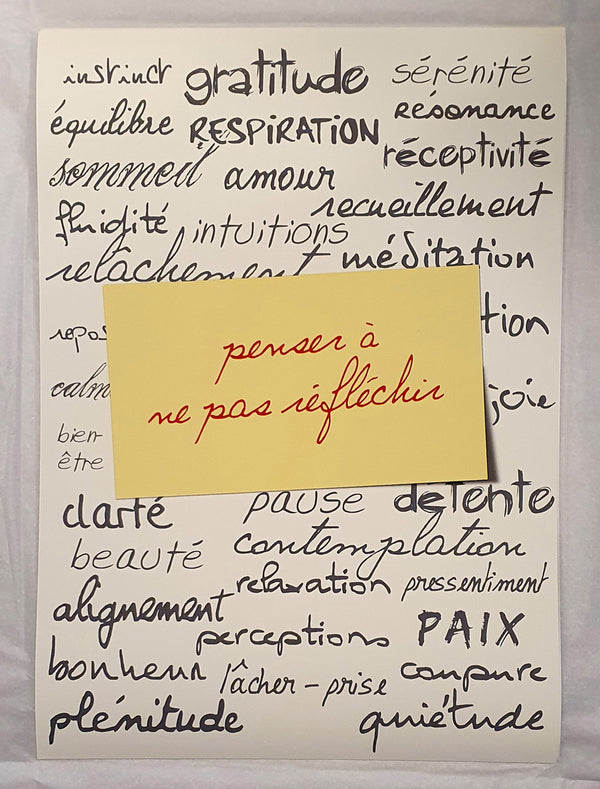 instinct gratitude sérénité
équilibre RESPIRATION Résonance
sommeil amour réceptivité
fluidité intuitions recueillement
relâchement méditation
penser à
ne pas réfléchir
repos tion
calm joie
bien-
être
clarté pause détente
beauté contemplation
relaxation pressentiment
alignement perceptions PAIX
bonheur lâcher-prise coupure
plénitude quiétude